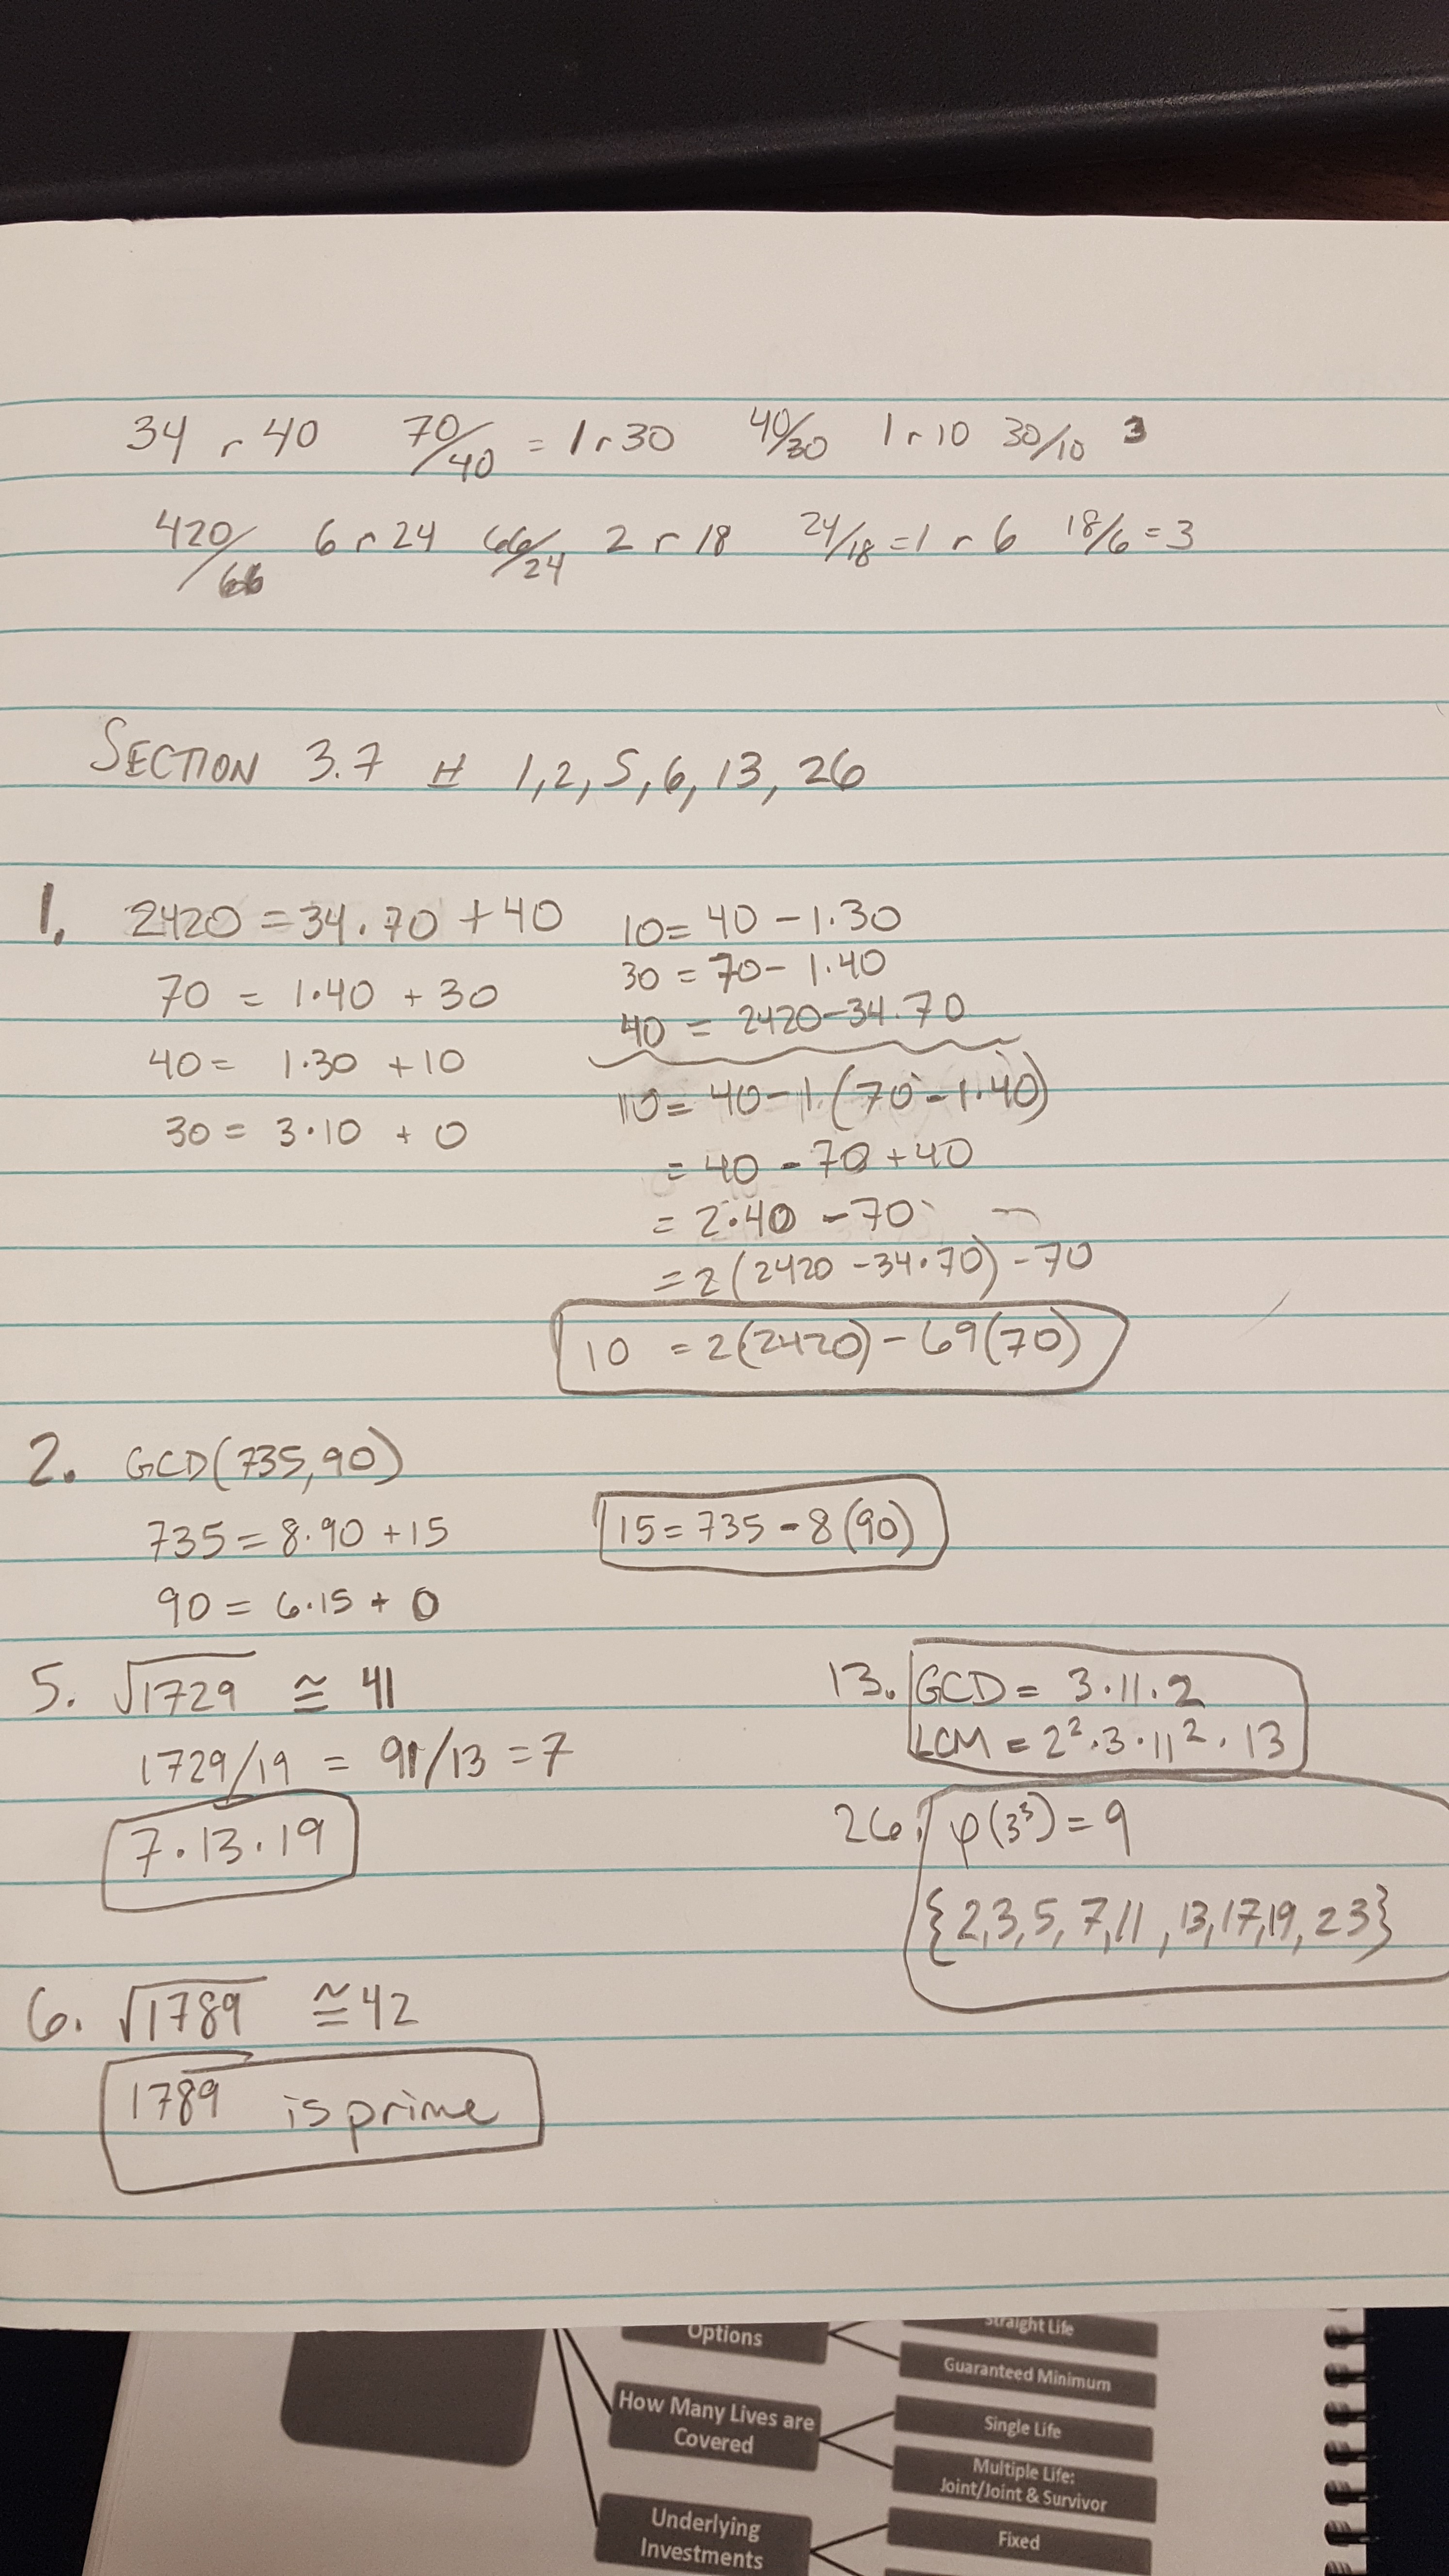 34 r 40 70/40 = 1 r 30 40/30 1 r 10 30/10 3
420/66 6 r 24 66/24 2 r 18 24/18 = 1 r 6 18/6 = 3
SECTION 3.7 # 1,2,5,6,13,26
1. 2420 = 34·70 + 40
70 = 1·40 + 30
40 = 1·30 + 10
30 = 3·10 + 0
10 = 40 - 1·30
30 = 70 - 1·40
40 = 2420 - 34·70
10 = 40 - 1(70 - 1·40)
= 40 - 70 + 40
= 2·40 - 70
= 2(2420 - 34·70) - 70
10 = 2(2420) - 69(70)
2. GCD(735,90)
735 = 8·90 + 15
90 = 6·15 + 0
15 = 735 - 8(90)
5. √1729 ≅ 41
1729/19 = 91/13 = 7
7·13·19
6. √1789 ≅ 42
1789 is prime
13. GCD = 3·11·2
LCM = 2²·3·11²·13
26. φ(3³) = 9
{2,3,5,7,11,13,17,19,23}
Options
Straight Life
Guaranteed Minimum
How Many Lives are
Covered
Single Life
Multiple Life:
Joint/Joint & Survivor
Underlying
Investments
Fixed